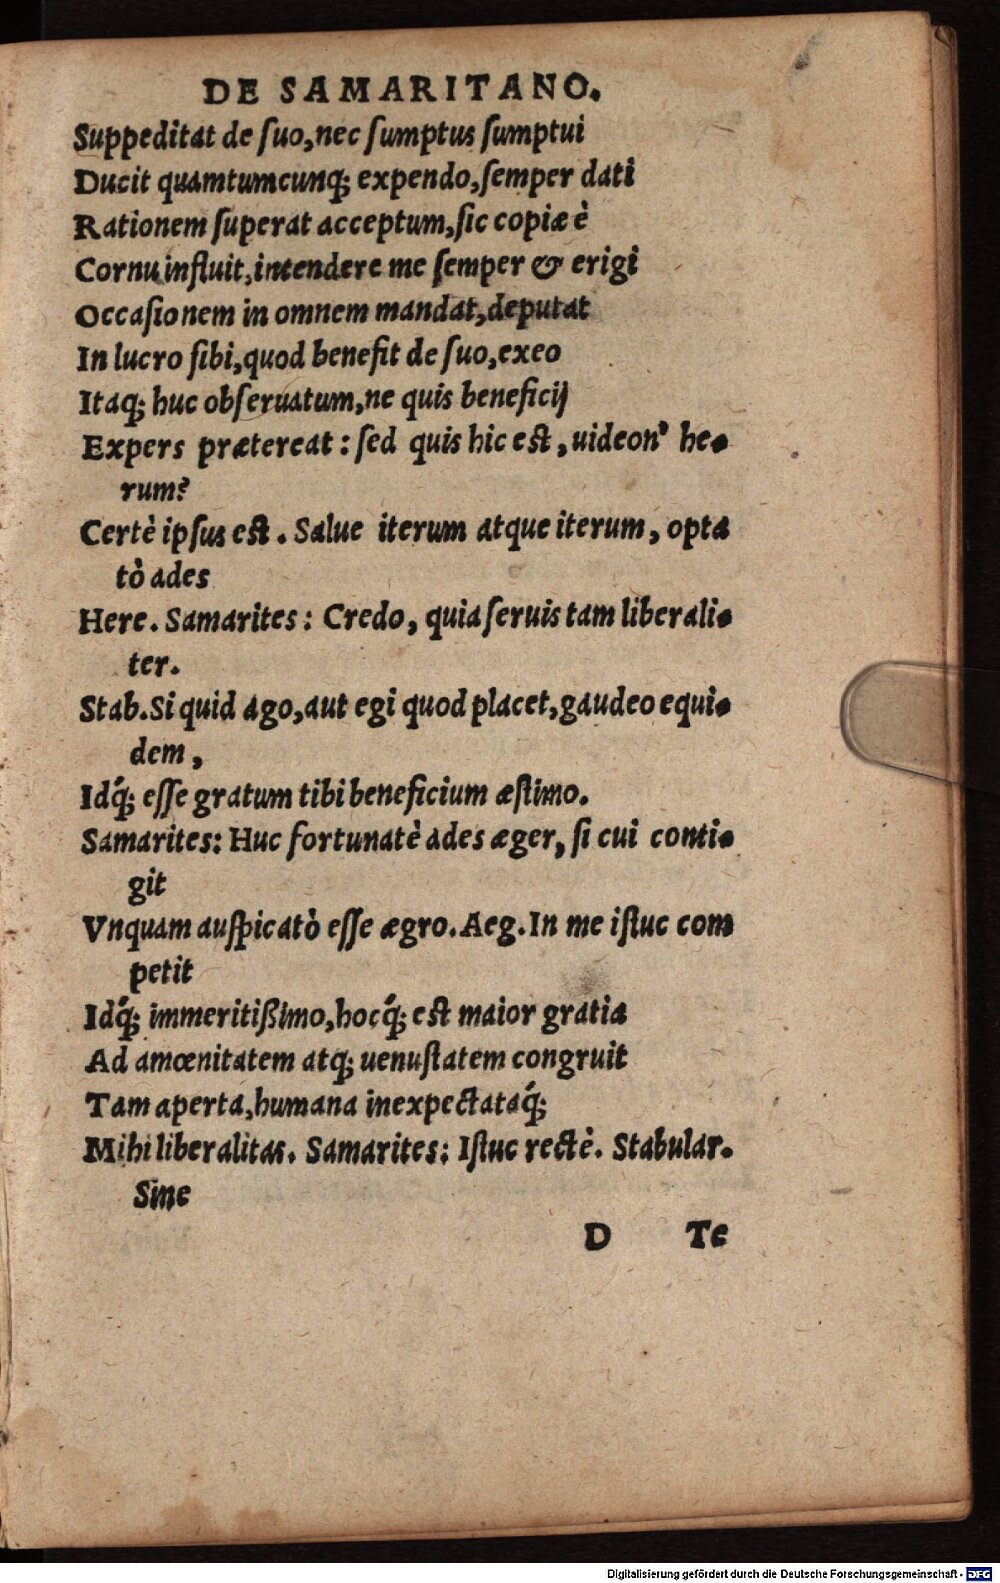 DE SAMARITANO.
Suppeditat de ſuo, nec ſumptus ſumptui
Ducit quamtumcunq; expendo, ſemper dati
Rationem ſuperat acceptum, ſic copiæ è
Cornu influit, intendere me ſemper & erigi
Occaſionem in omnem mandat, deputat
In lucro ſibi, quod benefit de ſuo, exeo
Itaq; huc obſeruatum, ne quis beneficij
Expers prætereat: ſed quis hic est, uideon' he-
rum?
Certè ipſus est. Salue iterum atque iterum, opta
tò ades
Here. Samarites: Credo, quia ſeruis tam liberali-
ter.
Stab. Si quid ago, aut egi quod placet, gaudeo equi-
dem,
Idq́; eſſe gratum tibi beneficium æſtimo.
Samarites: Huc fortunatè ades æger, ſi cui conti-
git
Vnquam auſpicatò eſſe ægro. Aeg. In me iſtuc com
petit
Idq́; immeritißimo, hocq́; est maior gratia
Ad amœnitatem atq; uenuſtatem congruit
Tam aperta, humana inexpectataq́;
Mihi liberalitas. Samarites: Iſtuc rectè. Stabular.
Sine
D Te
Digitalisierung gefördert durch die Deutsche Forschungsgemeinschaft - DFG